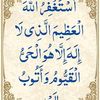 أَسْتَغْفِرُ اللهَ
الْعَظِيمَ الَّذِي لَا
إِلَهَ إِلَّا هُوَ الْحَيُّ
الْقَيُّومُ وَأَتُوبُ
إِلَيْهِ